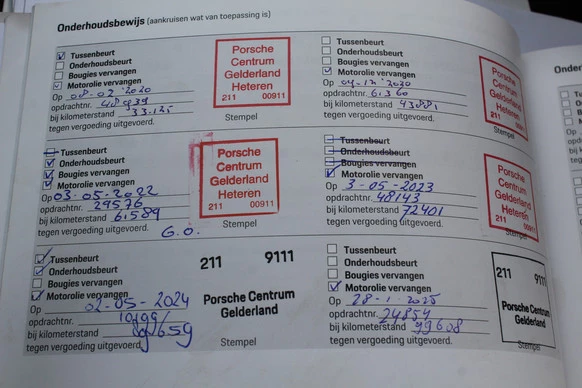 Onderhoudsbewijs (aankruisen wat van toepassing is)
Tussenbeurt
Onderhoudsbeurt
Bougies vervangen
Motorolie vervangen
Op 08-02-2020
opdrachtnr. 48939
bij kilometerstand 33-125
tegen vergoeding uitgevoerd.
Porsche
Centrum
Gelderland
Heteren
211 00911
Stempel
Tussenbeurt
Onderhoudsbeurt
Bougies vervangen
Motorolie vervangen
Op 04-12-2020
opdrachtnr. 6.360
bij kilometerstand 43881
tegen vergoeding uitgevoerd.
Porsche
Centrum
Gelderland
Heteren
211 00911
Stempel
Tussenbeurt
Onderhoudsbeurt
Bougies vervangen
Motorolie vervangen
Op 03-05-2022
opdrachtnr. 29576
bij kilometerstand 61589
tegen vergoeding uitgevoerd. G.O.
Porsche
Centrum
Gelderland
Heteren
211 00911
Stempel
Tussenbeurt
Onderhoudsbeurt
Bougies vervangen
Motorolie vervangen
Op 3-05-2023
opdrachtnr. 48143
bij kilometerstand 72401
tegen vergoeding uitgevoerd.
Porsche
Centrum
Gelderland
Heteren
211 00911
Stempel
Tussenbeurt
Onderhoudsbeurt
Bougies vervangen
Motorolie vervangen
Op 02-05-2024
opdrachtnr.
bij kilometerstand
tegen vergoeding uitgevoerd.
211 9111
Porsche Centrum
Gelderland
Stempel
Tussenbeurt
Onderhoudsbeurt
Bougies vervangen
Motorolie vervangen
Op 28-1-2025
opdrachtnr. 24854
bij kilometerstand 99608
tegen vergoeding uitgevoerd.
211 9111
Porsche Centrum
Gelderland
Stempel